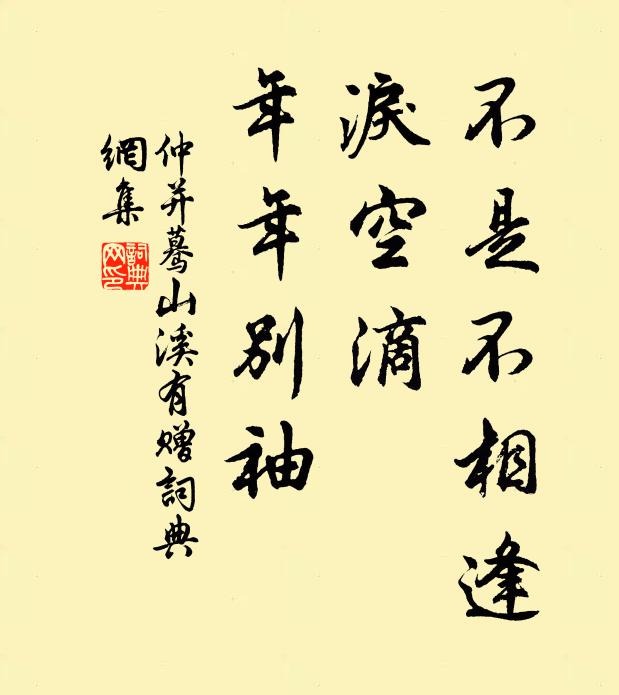 不是不相逢
淚空滴
年年别袖
仲并驀山溪有贈詞典
網集
詞典网印